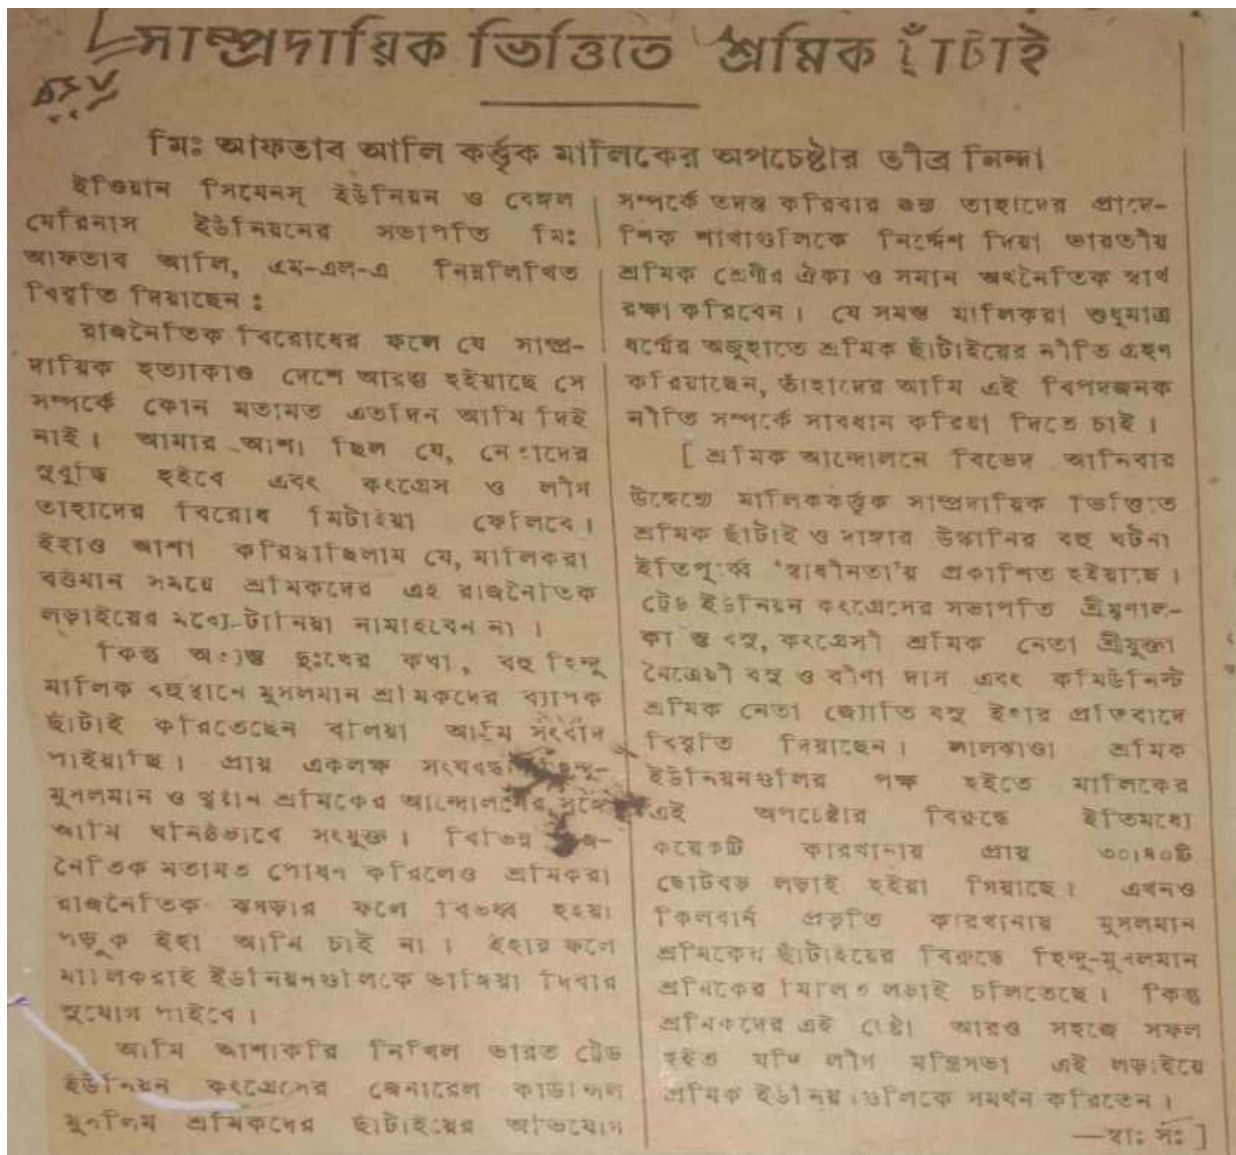 সাম্প্রদায়িক ভিত্তিতে শ্রমিক ছাঁটাই
মিঃ আফতাব আলি কর্তৃক মালিকের অপচেষ্টার তীব্র নিন্দা
ইণ্ডিয়ান সিমেনস্ ইউনিয়ন ও বেঙ্গল
মেরিনাস ইউনিয়নের সভাপতি মিঃ
আফতাব আলি, এম-এল-এ নিম্নলিখিত
বিবৃতি দিয়াছেন :
রাজনৈতিক বিরোধের ফলে যে সাম্প্র-
দায়িক হত্যাকাণ্ড দেশে আরম্ভ হইয়াছে সে
সম্পর্কে কোন মতামত এতদিন আমি দিই
নাই। আমার আশা ছিল যে, নেতাদের
সুবুদ্ধি হইবে এবং কংগ্রেস ও লীগ
তাহাদের বিরোধ মিটাইয়া ফেলিবে।
ইহাও আশা করিয়াছিলাম যে, মালিকরা
বর্তমান সময়ে শ্রমিকদের এই রাজনৈতিক
লড়াইয়ের মধ্যে টানিয়া নামাইবেন না।
কিন্তু অত্যন্ত দুঃখের কথা, বহু হিন্দু
মালিক বহুস্থানে মুসলমান শ্রমিকদের ব্যাপক
ছাঁটাই করিতেছেন বলিয়া আমি সংবাদ
পাইয়াছি। প্রায় একলক্ষ সংঘবদ্ধ হিন্দু-
মুসলমান ও খৃষ্টান শ্রমিকের আন্দোলনের সঙ্গে
আমি ঘনিষ্ঠভাবে সংযুক্ত। বিভিন্ন রাজ-
নৈতিক মতামত পোষণ করিলেও শ্রমিকরা
রাজনৈতিক ঝগড়ার ফলে বিভক্ত হইয়া
পড়ুক ইহা আমি চাই না। ইহার ফলে
মালিকরাই ইউনিয়নগুলিকে ভাঙ্গিয়া দিবার
সুযোগ পাইবে।
আমি আশাকরি নিখিল ভারত ট্রেড
ইউনিয়ন কংগ্রেসের জেনারেল কাউন্সিল
মুসলিম শ্রমিকদের ছাঁটাইয়ের অভিযোগ
সম্পর্কে তদন্ত করিবার জন্য তাহাদের প্রাদে-
শিক শাখাগুলিকে নির্দ্দেশ দিয়া ভারতীয়
শ্রমিক শ্রেণীর ঐক্য ও সমান অর্থনৈতিক স্বার্থ
রক্ষা করিবেন। যে সমস্ত মালিকরা শুধুমাত্র
ধর্ম্মের অজুহাতে শ্রমিক ছাঁটাইয়ের নীতি গ্রহণ
করিয়াছেন, তাঁহাদের আমি এই বিপদজনক
নীতি সম্পর্কে সাবধান করিয়া দিতে চাই।
[ শ্রমিক আন্দোলনে বিভেদ আনিবার
উদ্দেশ্যে মালিককর্তৃক সাম্প্রদায়িক ভিত্তিতে
শ্রমিক ছাঁটাই ও দাঙ্গার উস্কানির বহু ঘটনা
ইতিপূর্ব্বে 'স্বাধীনতা'য় প্রকাশিত হইয়াছে।
ট্রেড ইউনিয়ন কংগ্রেসের সভাপতি শ্রীমৃণাল-
কান্তি বসু, কংগ্রেসী শ্রমিক নেতা শ্রীযুক্তা
মৈত্রেয়ী বসু ও বীণা দাস এবং কমিউনিস্ট
শ্রমিক নেতা জ্যোতি বসু ইহার প্রতিবাদে
বিবৃতি দিয়াছেন। লালঝাণ্ডা শ্রমিক
ইউনিয়নগুলির পক্ষ হইতে মালিকের
এই অপচেষ্টার বিরুদ্ধে ইতিমধ্যে
কয়েকটি কারখানায় প্রায় ৩০।৪০টি
ছোটবড় লড়াই হইয়া গিয়াছে। এখনও
কিলবার্ন প্রভৃতি কারখানায় মুসলমান
শ্রমিকের ছাঁটাইয়ের বিরুদ্ধে হিন্দু-মুসলমান
শ্রমিকের মিলিত লড়াই চলিতেছে। কিন্তু
শ্রমিকদের এই চেষ্টা আরও সহজে সফল
হইত যদি লীগ মন্ত্রিসভা এই লড়াইয়ে
শ্রমিক ইউনিয়নগুলিকে সমর্থন করিতেন।
—স্বাঃ সঃ ]